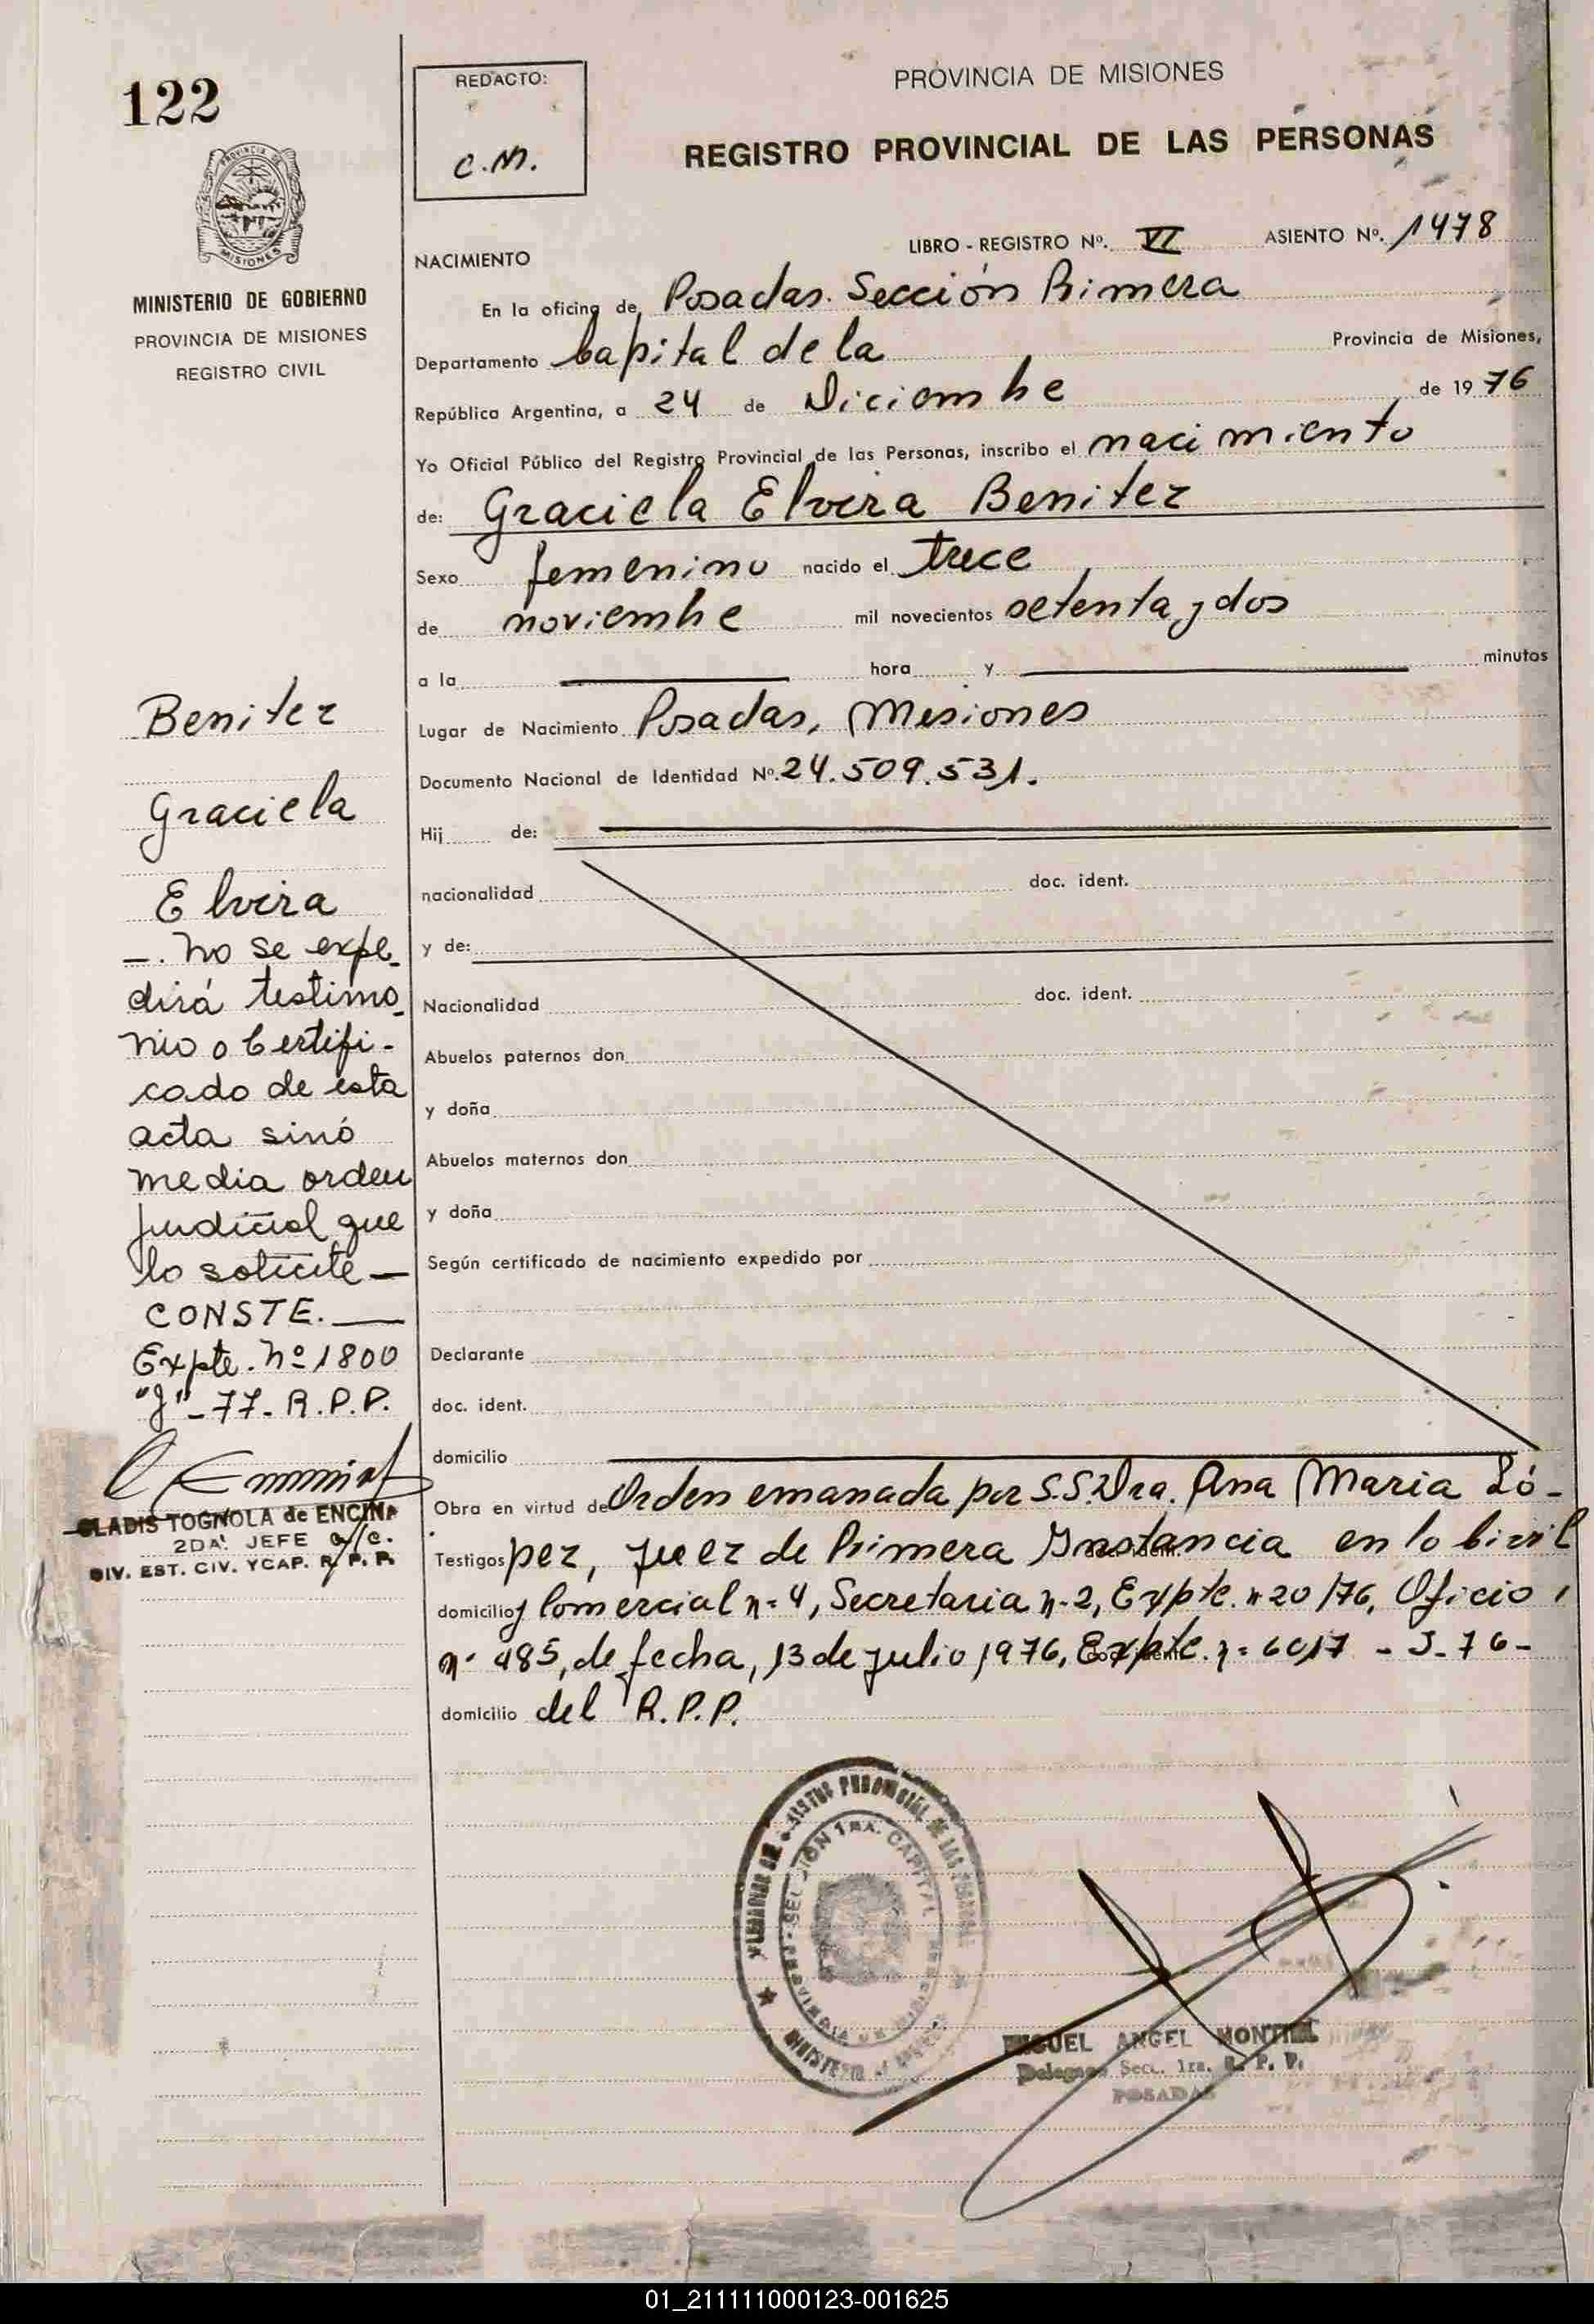 122
PROVINCIA DE
MISIONES
MINISTERIO DE GOBIERNO
PROVINCIA DE MISIONES
REGISTRO CIVIL
REDACTO:
C.M.
PROVINCIA DE MISIONES
REGISTRO PROVINCIAL DE LAS PERSONAS
LIBRO - REGISTRO Nº. VI ASIENTO Nº. 1478
NACIMIENTO
En la oficina de Posadas. Sección Primera
Departamento Capital de la Provincia de Misiones,
República Argentina, a 24 de Diciembre de 1976
Yo Oficial Público del Registro Provincial de las Personas, inscribo el nacimiento
de: Graciela Elvira Benitez
Sexo femenino nacido el trece
de noviembre mil novecientos setenta y dos
a la hora y minutos
Lugar de Nacimiento Posadas, Misiones
Documento Nacional de Identidad Nº. 24.509.531.
Hij de:
nacionalidad doc. ident.
y de:
Nacionalidad doc. ident.
Abuelos paternos don
y doña
Abuelos maternos don
y doña
Según certificado de nacimiento expedido por
Declarante
doc. ident.
domicilio
Obra en virtud de Orden emanada por S.S. Dra. Ana Maria Ló-
Testigos pez, Juez de Primera Instancia en lo Civil
domicilio y Comercial n= 4, Secretaria n-2, Expte. n 20/76, Oficio
nº 485, de fecha, 13 de julio 1976, Expte. n= 6017 - J-76-
domicilio del R.P.P.
Benitez
Graciela
Elvira
-. No se expe-
dirá testimo-
nio o Certifi-
cado de esta
acta sinó
media orden
judicial que
lo solicite —
CONSTE. —
Expte. Nº 1800
"J" - 77 - R.P.P.
GLADIS TOGNOLA de ENCINA
2DA. JEFE a/c.
DIV. EST. CIV. YCAP. R. P. P.
SECCION 1RA. CAPITAL
MIGUEL ANGEL MONTIEL
Delegado Secc. 1ra. R. P. P.
POSADAS
01_211111000123-001625